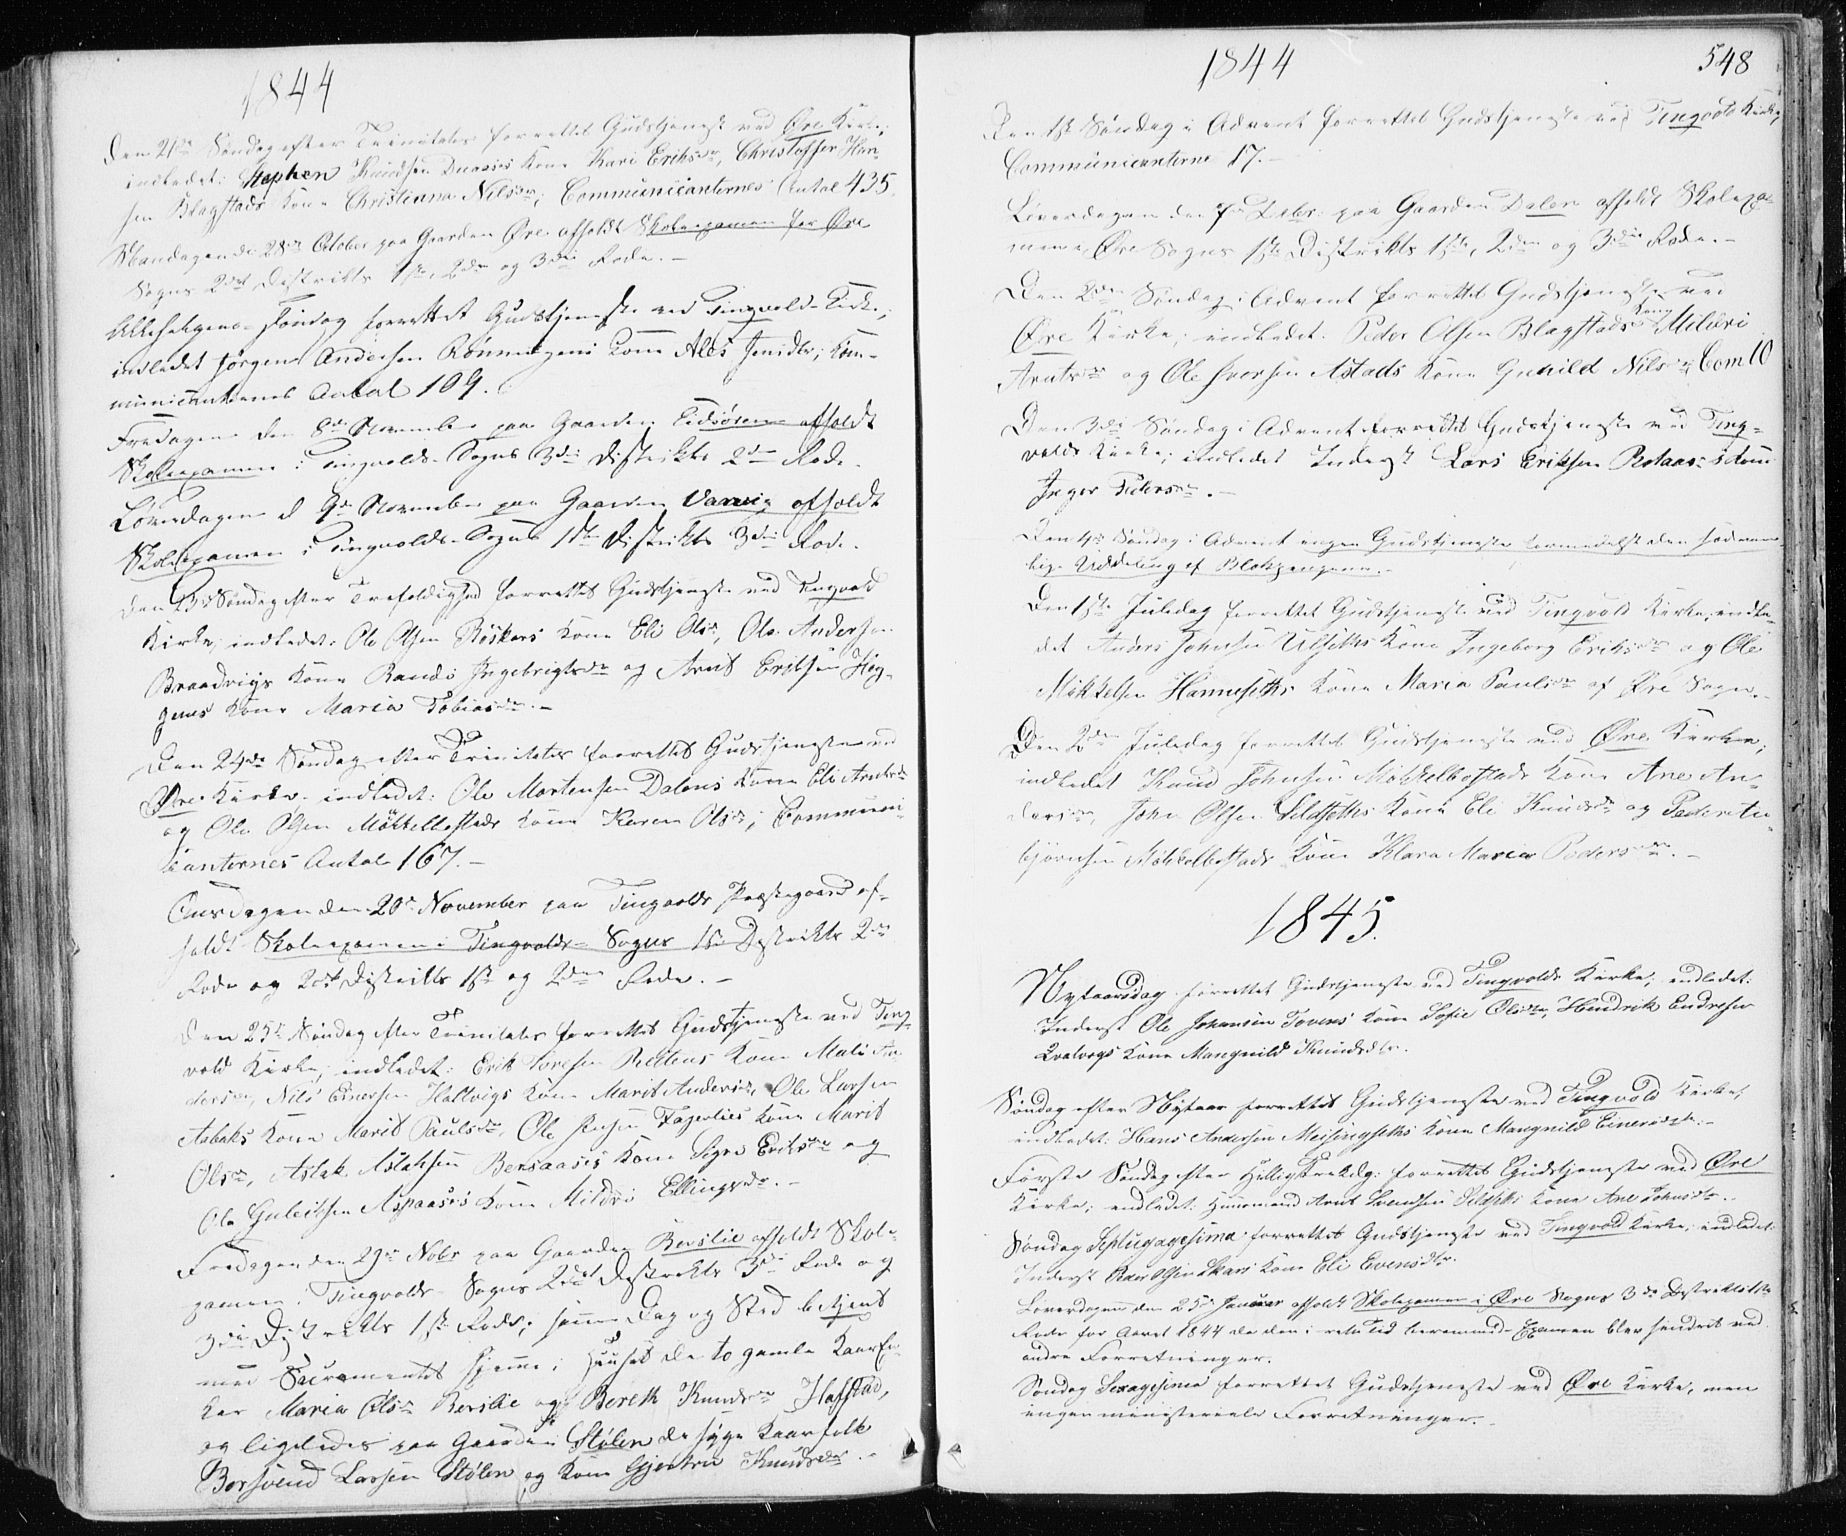 1844
Den 21de Søndag efter Trinitatis forrettet Gudstjeneste ved Øre Kirke;
indledet: Stephen Knudsen Kone Kari Eriksdr, Christoffer Han-
sen Blagstads Kone Christianna Nilsdr; Communicanternes Antal 435.
Mandagen d: 28de October paa Gaarden Øre afholdt Skoleexamen for Øre
Sogns 2det Districts 1ste, 2den og 3die Rode. -
Allehelgens-Søndag forrettet Gudstjeneste ved Tingvold Kirke;
indledet Jørgen Andersen Rønningens Kone Ales ; Com-
municanternes Antal 109.
Fredagen den 8de November paa Gaarden Eidsøren afholdt
Skoleexamen i Tingvolds-Sogns 3die Districts 2den Rode.
Løverdagen d 9de November paa Gaarden afholdt
Skoleexamen i Tingvolds-Sogns 1ste Districts 3die Rode.
Den 23de Søndag efter Trefoldighed forrettet Gudstjeneste ved Tingvold
Kirke, indledet: Ole Olsen Kone Eli Olsdr, Ole Andersen
Kone Randi Ingebrigtsdr og Arnt Eriksen Høy-
gens Kone Maria Tobiasdr. -
Den 24de Søndag efter Trinitatis forrettet Gudstjeneste ved
Øre Kirke, indledet: Ole Mortensen Dalens Kone Eli Arntsdr
og Ole Olsen Møkkelbostads Kone Karen Olsdr; Communi-
canternes Antal 167. -
Onsdagen den 20de November paa Tingvolds Præstegaard af-
holdt Skoleexamen i Tingvolds-Sogns 1ste Districts 2den
Rode og 2det Districts 1ste og 2den Rode. -
Den 25de Søndag efter Trinitatis forrettet Gudstjeneste ved Ting-
vold Kirke, indledet: Erik Kone Mali An-
dersdr, Nils Einersen Hallvigs Kone Marit Andersdr, Ole Larsen
Aabaks Kone Marit Paulsdr, Ole Kone Marit
Olsdr, Aslak Aslaksen Kone Sigri Eriksdr og
Ole Gulliksen Aspaases Kone Mildri Ellingsdr. -
Fredagen den 29de Nobr paa Gaarden Beverlie afholdt Skole-
examen i Tingvolds-Sogns 2det Districts 3die Rode og
3die Districts 1ste Rode; samme Dag og Sted betjent
med Sacramentet hjemme i Huuset de to gamle Kaarfol-
ker Maria Olsdr og Bereth Knudsdr Hafstad,
og ligeledes paa Gaarden Stølen de syge Kaarfolk
Larsen Stølen og Kone Gjertru Knudsdr. -
1844
548
Den 1ste Søndag i Advent forrettet Gudstjeneste ved Tingvold Kirke,
Communicanterne 17. -
Løverdagen den 7de Decbr: paa Gaarden Dalen afholdt Skoleexa-
men i Øre Sogns 1ste Districts 1ste, 2den og 3die Rode. -
Den 2den Søndag i Advent forrettet Gudstjeneste ved
Øre Kirke, indledet: Peder Olsen Blagstads Kone Mildri
Arntsdr og Ole Iversen Astads Kone Gunild Nilsdr Com 10
Den 3die Søndag i Advent forrettet Gudstjeneste ved Ting-
volds Kirke; indledet Inderst Lars Eriksen Kone
Inger Pedersdr. -
Den 4de Søndag i Advent ingen Gudstjeneste formedelst den sædvan-
lige Uddeling af
Den 1ste Juledag forrettet Gudstjeneste ved Tingvold Kirke, indle-
det Anders Johnsen Ulseths Kone Ingeborg Eriksdr og Ole
Mikkelsen Hanneseths Kone Maria Paulsdr af Øre Sogn. -
Den 2den Juledag forrettet Gudstjeneste ved Øre Kirke,
indledet Knud Johnsen Møkkelbostads Kone Ane An-
dersdr, John Olsen Sildseths Kone Eli Knudsdr og Peder
bjørnsen Møkkelbostads Kone Klara Maria Pedersdr. -
1845.
Nytaarsdag forrettet Gudstjeneste ved Tingvolds Kirke, indledet:
Inderst Ole Johansen Kone Sofie Olsdr, Hendrik Endresen
Qvalvogs Kone Mangnild Knudsdtr.
Søndag efter Nytaar forrettet Gudstjeneste ved Tingvold Kirke,
indledet: Hans Andersen Meisingseths Kone Mangnild Einersdtr. -
Første Søndag efter Helligtrekdg: forrettet Gudstjeneste ved Øre
Kirke; indledet: Huusmand Arnt Kone Ane Johnsdtr. -
Søndag Septuagesima forrettet Gudstjeneste ved Tingvold Kirke, indledet
Inderst Olsen Kone Eli Evensdtr.
Løverdagen den 25de Januar afholdt Skoleexamen i Øre Sogns 3die Districts 1ste
Rode for Aaret 1844 da den i rette Tid berammede Examen blev hindret ved
andre Forretninger.
Søndag Sexagesima forrettet Gudstjeneste ved Øre Kirke, men
ingen ministerielle Forretninger. -